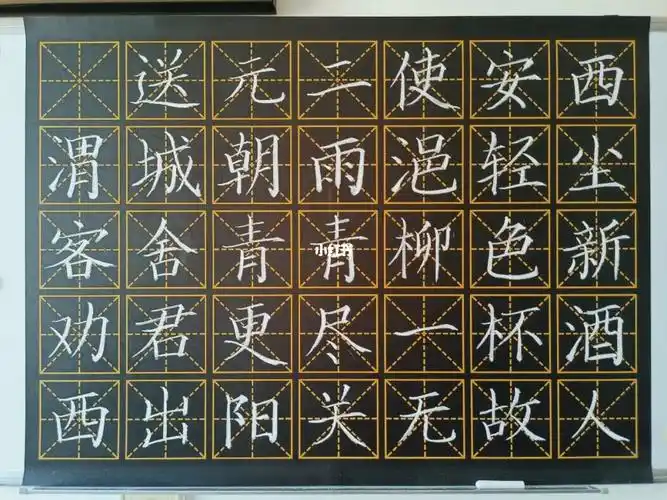 送元二使安西
渭城朝雨浥轻尘
客舍青青柳色新
劝君更尽一杯酒
西出阳关无故人
小红书